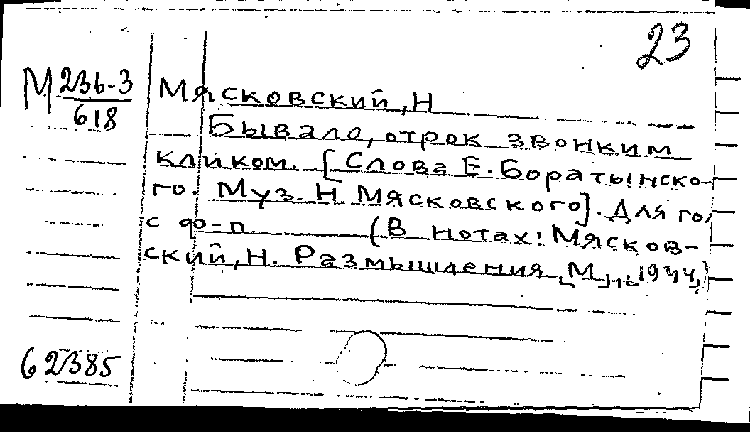 23
М 236-3
618
Мясковский, Н
Бывало, отрок звонким
кликом. [Слова Е. Боратынско-
го. Муз. Н Мясковского]. Для го
с ф-п (В нотах: Мясков-
ский, Н. Размышления [М], 1944)
62385